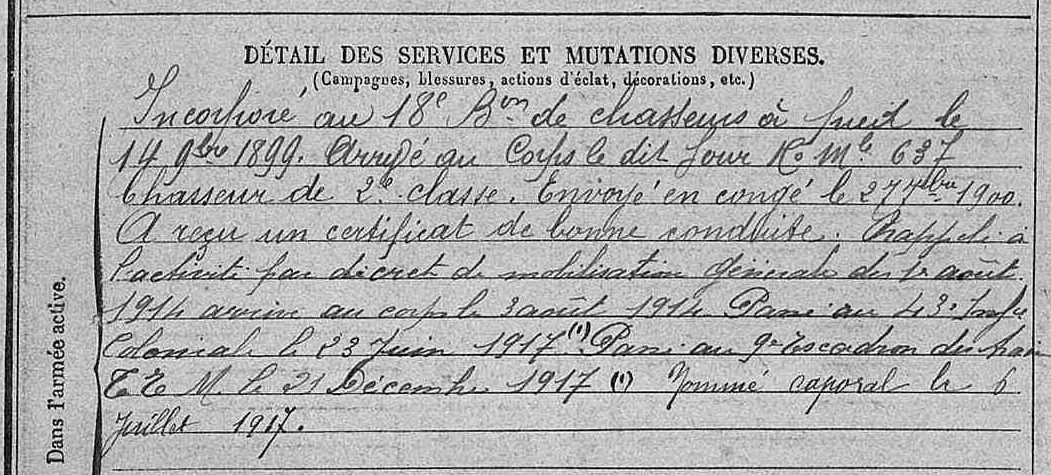 DÉTAIL DES SERVICES ET MUTATIONS DIVERSES.
(Campagnes, blessures, actions d'éclat, décorations, etc.)
Dans l'armée active.
Incorporé au 18e Bon de chasseurs à pied le
14 9bre 1899. Arrivé au Corps le dit Jour No Mle 637
Chasseur de 2e classe. Envoyé en congé le 27 7bre 1900.
A reçu un certificat de bonne conduite. Rappelé à
l'activité par décret de mobilisation générale du 1er août
1914 arrivé au corps le 3 août 1914 Passé au 43e Infie
Coloniale le 23 Juin 1917 (1) Passé au 9e Escadron du train
T E M. le 21 Décembre 1917 (1) Nommé caporal le 6
Juillet 1917.